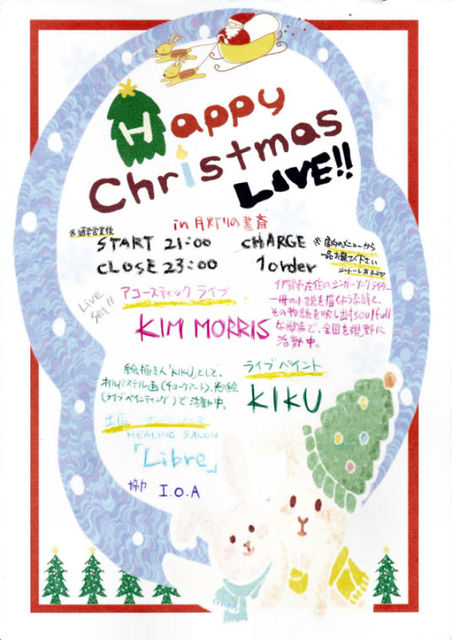 Happy
Christmas
LIVE!!
in 月灯りの書斎
※通常営業後
START 21:00
CLOSE 23:00
CHARGE
1 order
※店内のメニューから
一品お選び下さい
Live
set!!
アコースティック ライブ
KIM MORRIS
シンガーソングライター
一冊の小説を描くような詩と、
その物語を映し出すsoulfull
な歌声で、全国を視野に
活動中。
絵描き人「KIKU」として、
オイルパステル画(チョークアート)、光の絵
(ライブペインティング)で活動中。
ライブペイント
KIKU
HEALING SALON
「Libre」
協力 I.O.A